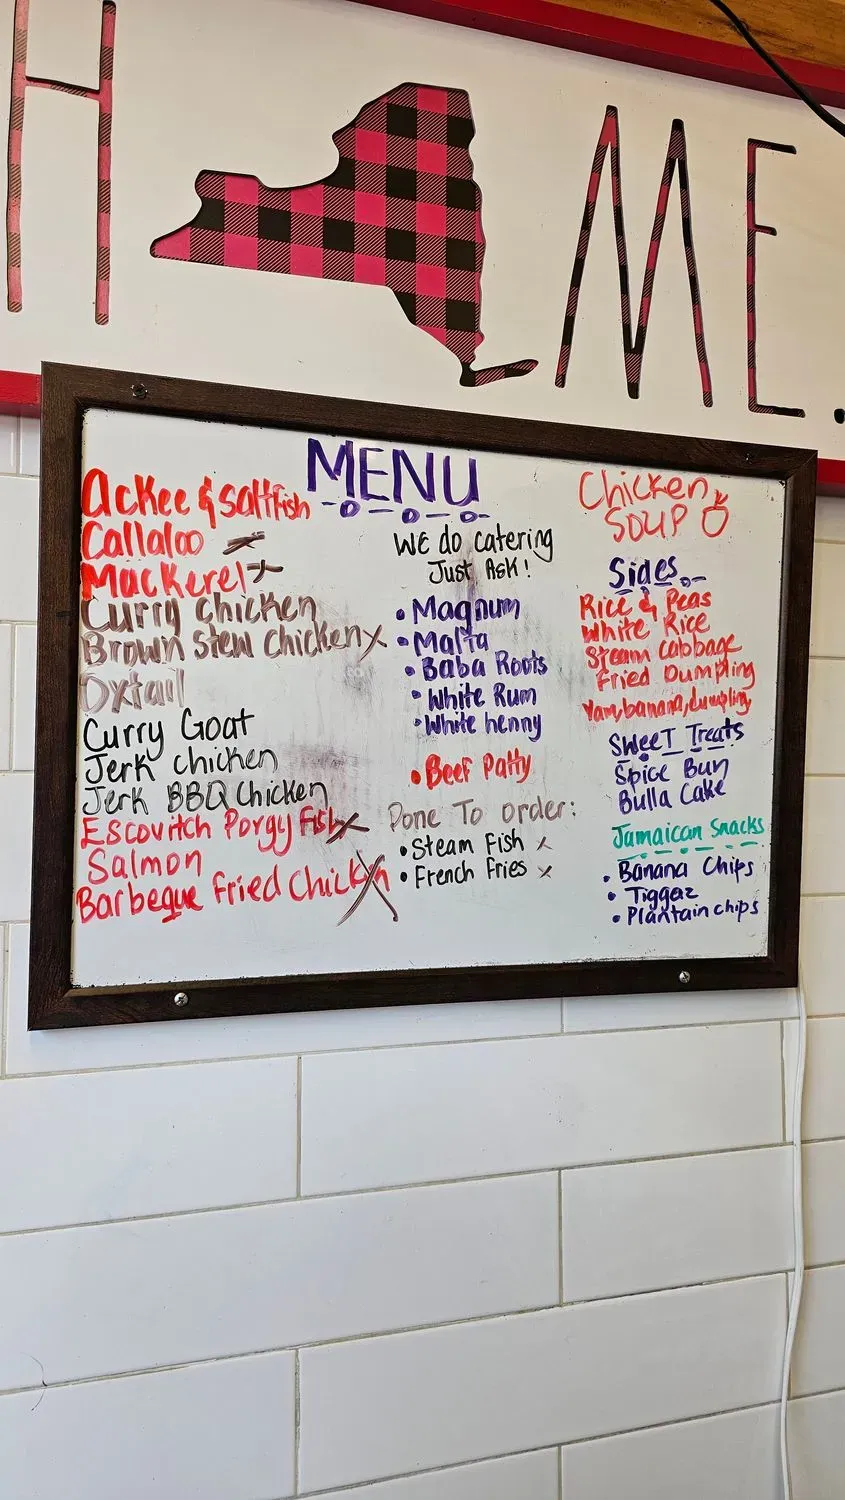 H ME.
MENU
Ackee & saltfish
Callaloo x
Mackerel x
Curry chicken
Brown stew chicken x
Oxtail
Curry Goat
Jerk chicken
Jerk BBQ chicken
Escovitch Porgy Fish x
Salmon
Barbeque fried chicken x
We do catering
Just ASK!
• Magnum
• Malta
• Baba Roots
• White Rum
• White henny
• Beef Patty
Done To order:
• Steam Fish x
• French Fries x
Chicken
SOUP
Sides
Rice & Peas
White Rice
Steam cabbage
Fried Dumpling
Yam, banana, dumpling
SWeeT Treats
Spice Bun
Bulla Cake
Jamaican Snacks
• Banana Chips
• Tiggaz
• Plantain chips